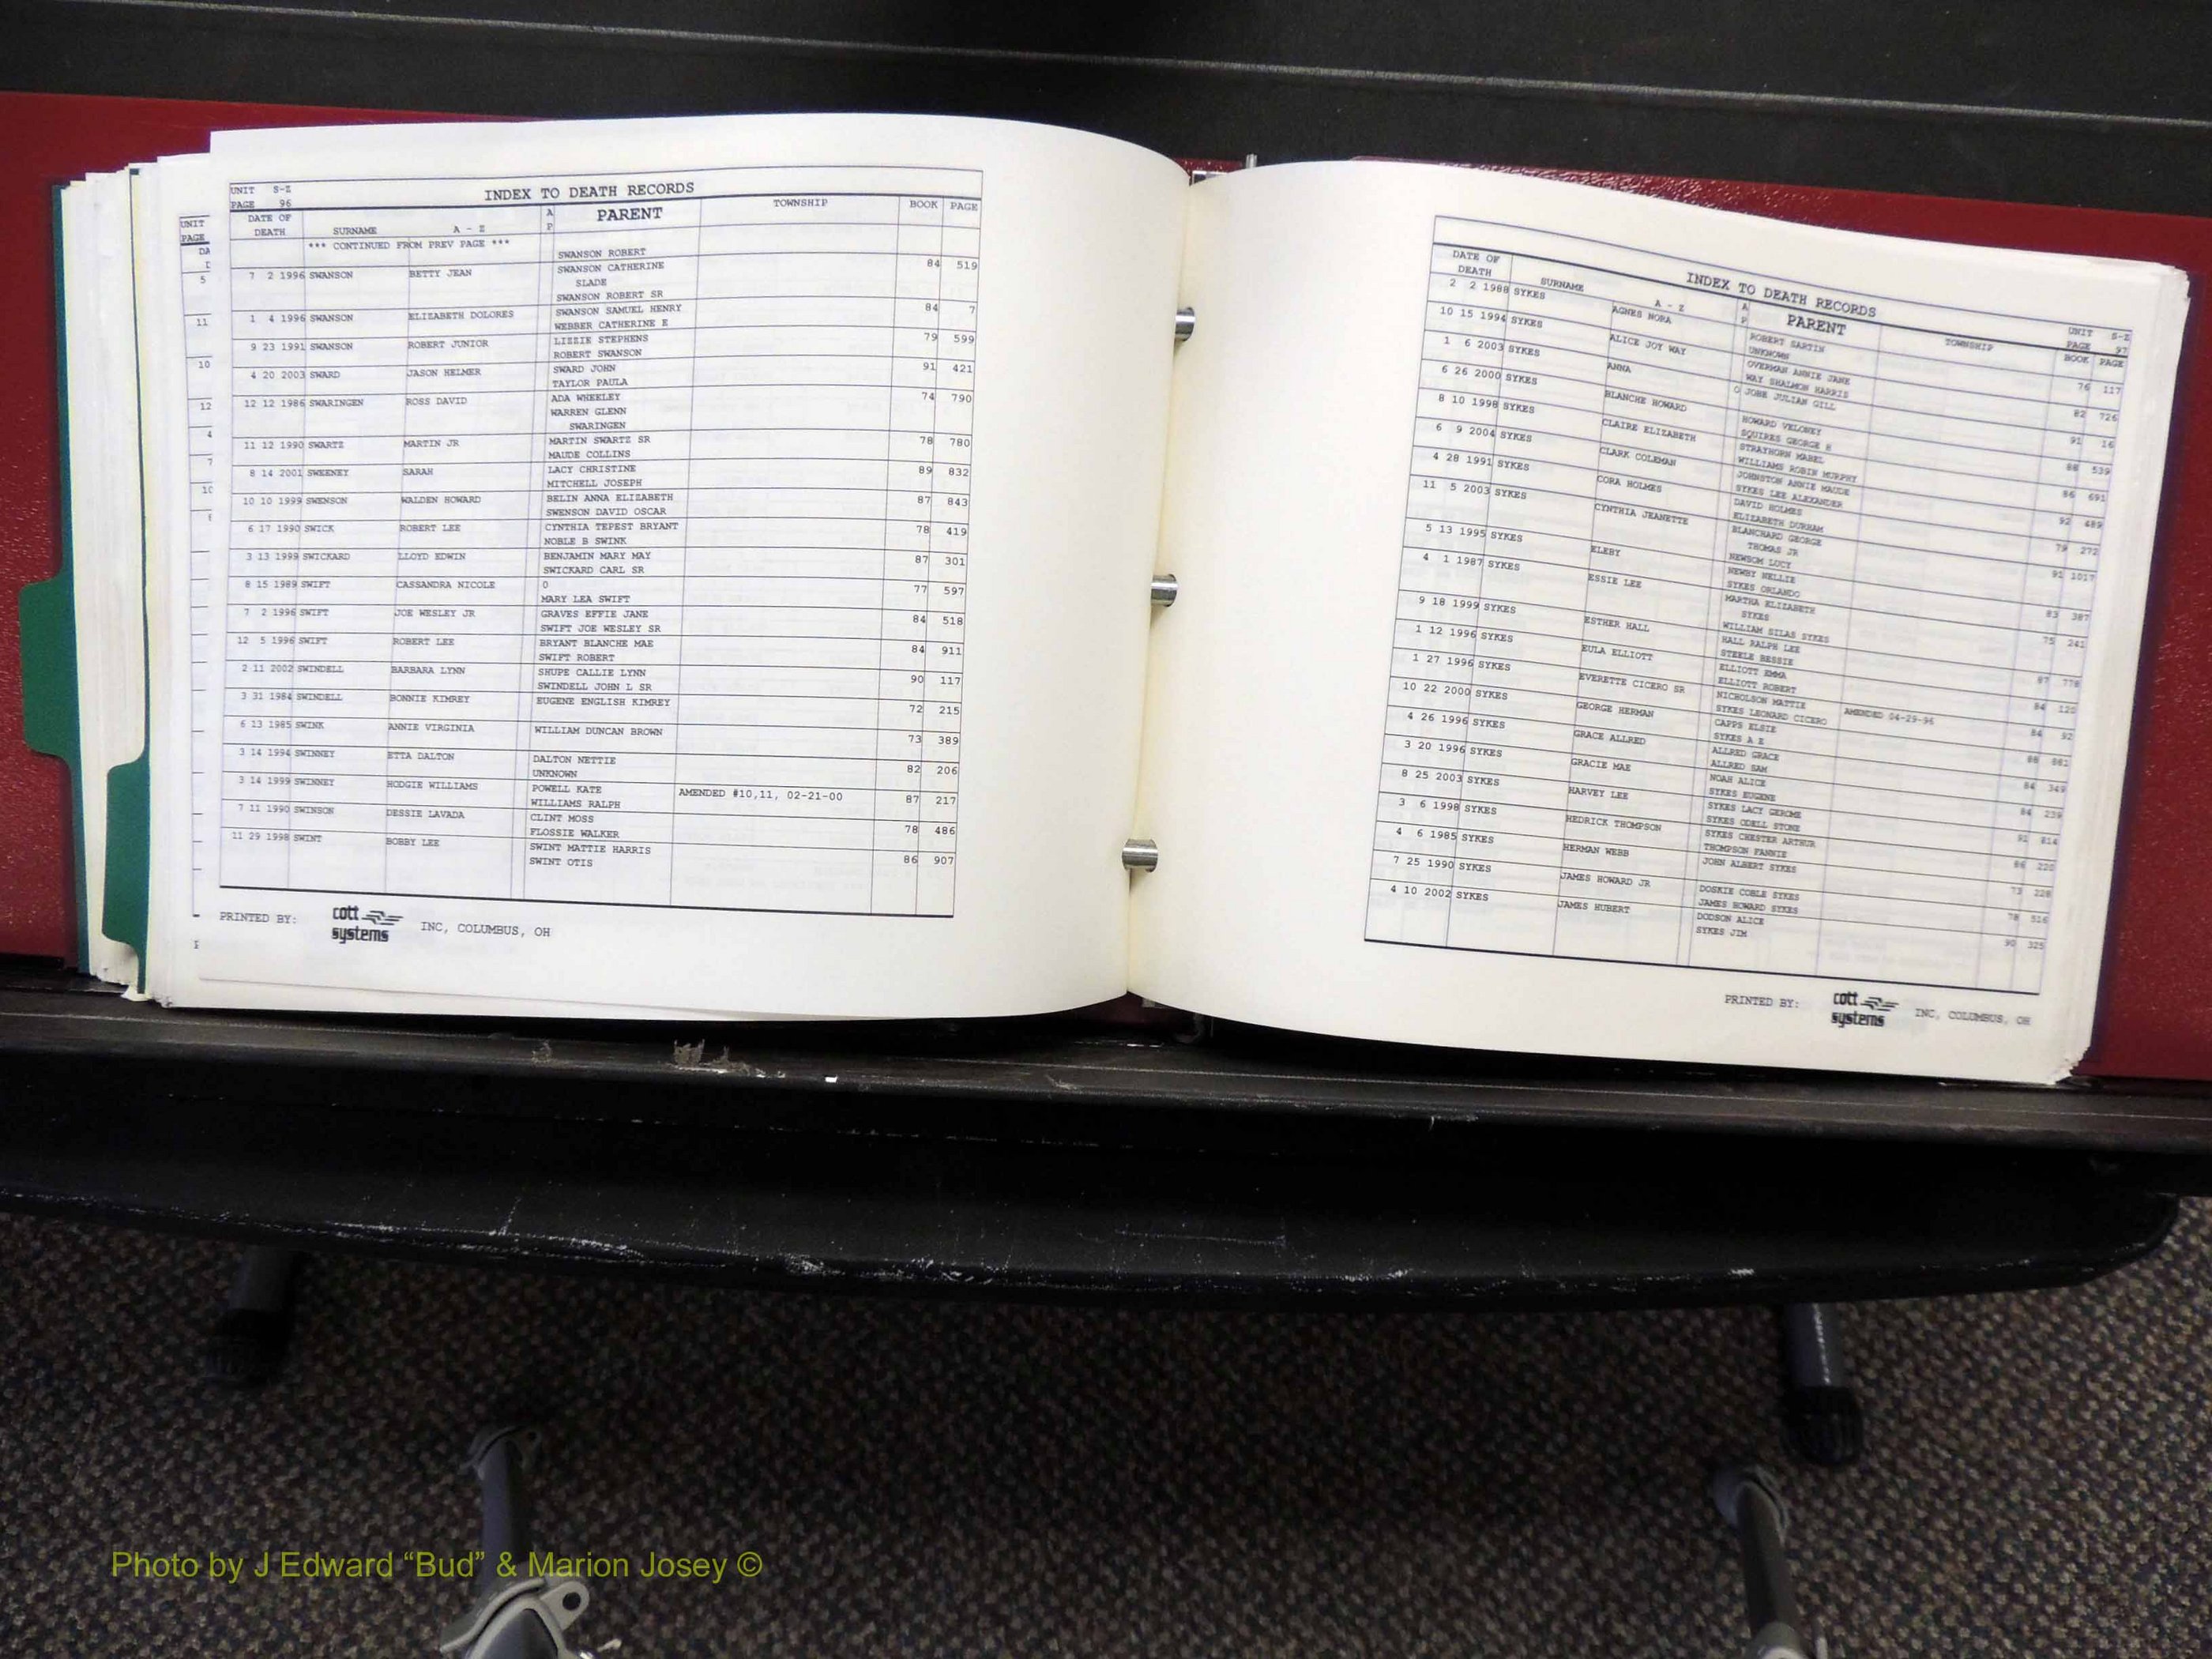 UNIT S-Z
PAGE 96
INDEX TO DEATH RECORDS
DATE OF DEATH SURNAME A - Z A P PARENT TOWNSHIP BOOK PAGE
*** CONTINUED FROM PREV PAGE *** SWANSON ROBERT
7 2 1996 SWANSON BETTY JEAN SWANSON CATHERINE 84 519
SLADE
SWANSON ROBERT SR
1 4 1996 SWANSON ELIZABETH DOLORES SWANSON SAMUEL HENRY 84 7
WEBBER CATHERINE E
9 23 1991 SWANSON ROBERT JUNIOR LIZZIE STEPHENS 79 599
ROBERT SWANSON
4 20 2003 SWARD JASON HELMER SWARD JOHN 91 421
TAYLOR PAULA
12 12 1986 SWARINGEN ROSS DAVID ADA WHEELEY 74 790
WARREN GLENN
SWARINGEN
11 12 1990 SWARTZ MARTIN JR MARTIN SWARTZ SR 78 780
MAUDE COLLINS
8 14 2001 SWEENEY SARAH LACY CHRISTINE 89 832
MITCHELL JOSEPH
10 10 1999 SWENSON WALDEN HOWARD BELIN ANNA ELIZABETH 87 843
SWENSON DAVID OSCAR
6 17 1990 SWICK ROBERT LEE CYNTHIA TEPEST BRYANT 78 419
NOBLE B SWINK
3 13 1999 SWICKARD LLOYD EDWIN BENJAMIN MARY MAY 87 301
SWICKARD CARL SR
8 15 1989 SWIFT CASSANDRA NICOLE 0 77 597
MARY LEA SWIFT
7 2 1996 SWIFT JOE WESLEY JR GRAVES EFFIE JANE 84 518
SWIFT JOE WESLEY SR
12 5 1996 SWIFT ROBERT LEE BRYANT BLANCHE MAE 84 911
SWIFT ROBERT
2 11 2002 SWINDELL BARBARA LYNN SHUPE CALLIE LYNN 90 117
SWINDELL JOHN L SR
3 31 1984 SWINDELL BONNIE KIMREY EUGENE ENGLISH KIMREY 72 215
6 13 1985 SWINK ANNIE VIRGINIA WILLIAM DUNCAN BROWN 73 389
3 14 1994 SWINNEY ETTA DALTON DALTON NETTIE 82 206
UNKNOWN
3 14 1999 SWINNEY HODGIE WILLIAMS POWELL KATE AMENDED #10,11, 02-21-00 87 217
WILLIAMS RALPH
7 11 1990 SWINSON DESSIE LAVADA CLINT MOSS 78 486
FLOSSIE WALKER
11 29 1998 SWINT BOBBY LEE SWINT MATTIE HARRIS 86 907
SWINT OTIS
PRINTED BY: cott systems INC, COLUMBUS, OH
INDEX TO DEATH RECORDS
UNIT S-Z
PAGE 97
DATE OF DEATH SURNAME A - Z A P PARENT TOWNSHIP BOOK PAGE
2 2 1988 SYKES AGNES NORA ROBERT SARTIN 76 117
UNKNOWN
10 15 1994 SYKES ALICE JOY WAY OVERMAN ANNIE JANE 82 726
WAY SHALMON HARRIS
1 6 2003 SYKES ANNA O JOBE JULIAN GILL 91 16
6 26 2000 SYKES BLANCHE HOWARD HOWARD VELONEY 88 539
SQUIRES GEORGE H
8 10 1998 SYKES CLAIRE ELIZABETH STRAYHORN MABEL 86 691
WILLIAMS ROBIN MURPHY
6 9 2004 SYKES CLARK COLEMAN JOHNSTON ANNIE MAUDE 92 489
SYKES LEE ALEXANDER
4 28 1991 SYKES CORA HOLMES DAVID HOLMES 79 272
ELIZABETH DURHAM
11 5 2003 SYKES CYNTHIA JEANETTE BLANCHARD GEORGE 91 1017
THOMAS JR
NEWSOM LUCY
5 13 1995 SYKES ELEBY NEWBY NELLIE 83 387
SYKES ORLANDO
4 1 1987 SYKES ESSIE LEE MARTHA ELIZABETH 75 241
SYKES
WILLIAM SILAS SYKES
9 18 1999 SYKES ESTHER HALL HALL RALPH LEE 87 778
STEELE BESSIE
1 12 1996 SYKES EULA ELLIOTT ELLIOTT EMMA 84 120
ELLIOTT ROBERT
1 27 1996 SYKES EVERETTE CICERO SR NICHOLSON MATTIE AMENDED 04-29-96 84 92
SYKES LEONARD CICERO
10 22 2000 SYKES GEORGE HERMAN CAPPS ELSIE 88 881
SYKES A E
4 26 1996 SYKES GRACE ALLRED ALLRED GRACE 84 349
ALLRED SAM
3 20 1996 SYKES GRACIE MAE NOAH ALICE 84 239
SYKES EUGENE
8 25 2003 SYKES HARVEY LEE SYKES LACY GEROME 91 814
SYKES ODELL STONE
3 6 1998 SYKES HEDRICK THOMPSON SYKES CHESTER ARTHUR 86 220
THOMPSON FANNIE
4 6 1985 SYKES HERMAN WEBB JOHN ALBERT SYKES 73 228
7 25 1990 SYKES JAMES HOWARD JR DOSKIE COBLE SYKES 78 516
JAMES HOWARD SYKES
4 10 2002 SYKES JAMES HUBERT DODSON ALICE 90 325
SYKES JIM
PRINTED BY: cott systems INC, COLUMBUS, OH
Photo by J Edward “Bud” & Marion Josey ©